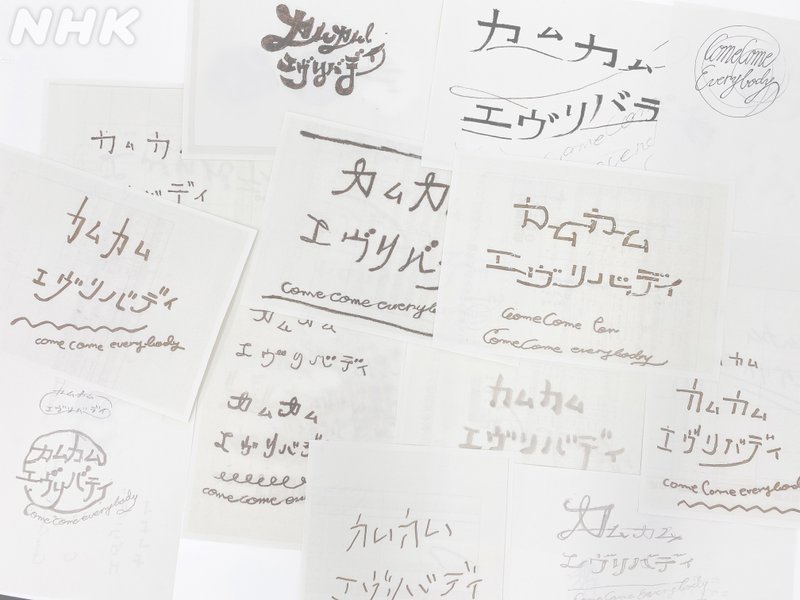 NHK
カムカム
エヴリバディ
カムカム
エヴリバ
ComeCome
Everybody
カムカ
バディ
カムカ
エヴリバ
come come everybody
カムカム
エヴリバディ
ComeCome
ComeCome everybody
カムカム
エヴリバディ
come come everybody
カムカム
エヴリバディ
カムカム
エヴリバディ
come come
カムカム
エヴリバディ
カム
カムカム
エヴリバディ
come Come everybody
カムカム
エヴリバディ
カムカム
エヴリバディ
Come Come everybody
カムカム
エヴリバディ
カムカム
エヴリバディ
ComeCome everybody